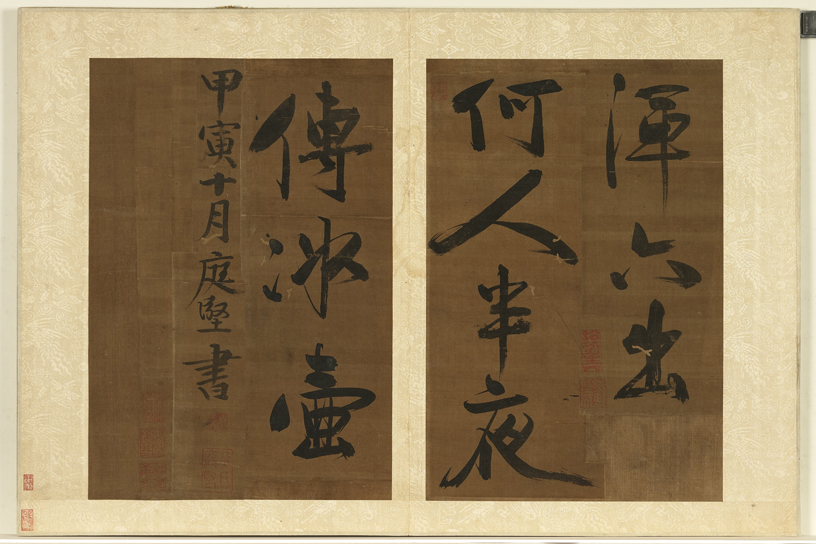 渾六出
何人半夜
傳冰壺
甲寅十月庭堅書